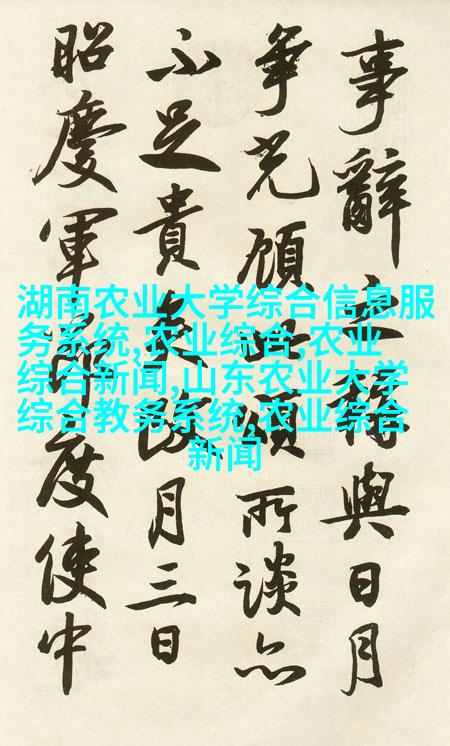 事辭稱與日月
爭光顧此頌所談亦
不足貴矣月三日
昭慶軍節度使中
湖南农业大学综合信息服
务系统,农业综合,农业
综合新闻,山东农业大学
综合教务系统,农业综合
新闻